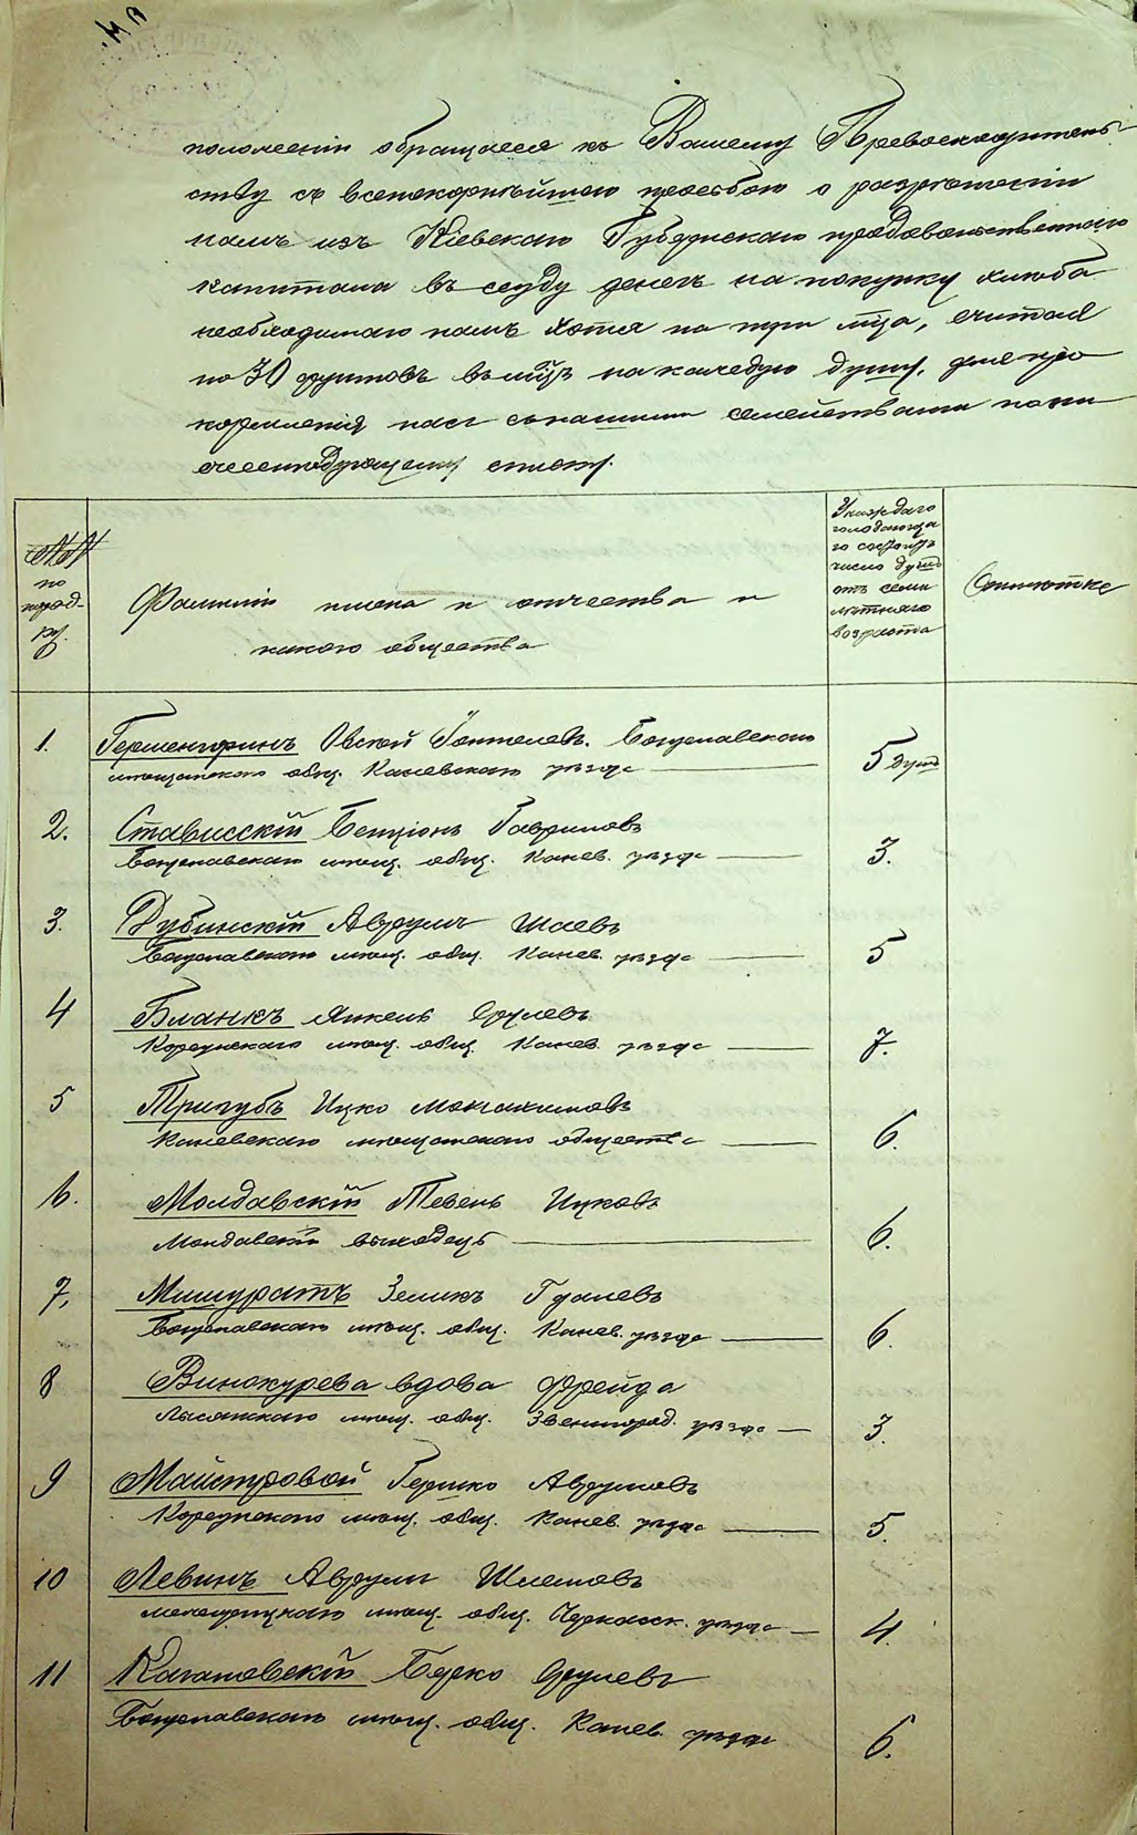 положеніи обращаемся къ Вашему Превосходитель-
ству съ всепокорнѣйшею просьбою о разрѣшеніи
намъ изъ Кіевскаго Губернскаго продовольственнаго
капитала въ ссуду денегъ на покупку хлѣба
необходимаго намъ хотя на три м-ца, считая
по 30 фунтовъ въ м-цъ на каждую душу, для про
кормленія насъ съ нашими семействами по ни
жеслѣдующему списку.
№№
по
поряд-
ку.
Фамиліи имена и отчества и
какого общества
У каждаго
голодающа
го состоитъ
число душъ
отъ семи
лѣтняго
возраста
Отмѣтка
1. Герменгринъ Овсей Іонтелев. Богуславскаго
мѣщанскаго общ. Каневскаго уѣзда 5 душъ
2. Стависскій Бенціонъ Гавриловъ
Богуславскаго мѣщ. общ. Канев. уѣзда 3.
3. Дубинскій Аврумъ Шаевъ
Богуславскаго мѣщ. общ. Канев. уѣзда 5
4 Бланкъ Янкель Срулевъ
Корсунскаго мѣщ. общ. Канев. уѣзда 7.
5 Тригубъ Ицко
Каневскаго мѣщанскаго общества 6.
6. Молдавскій Тевель Ицковъ
Молдавскій выходецъ 6.
7. Мишуратъ Зелик Гдалевъ
Богуславскаго мѣщ. общ. Канев. уѣзда 6.
8 Винокурева вдова Фрейда
Лысянскаго мѣщ. общ. Звенигород. уѣзда 3.
9 Майстровой Гершко Аврумовъ
Корсунскаго мѣщ. общ. Канев. уѣзда 5.
10 Левинъ Аврумъ Шлемовъ
мѣщ. общ. Черкасск. уѣзда 4.
11 Кагановскій Берко Срулевъ
Богуславскаго мѣщ. общ. Канев. уѣзда 6.